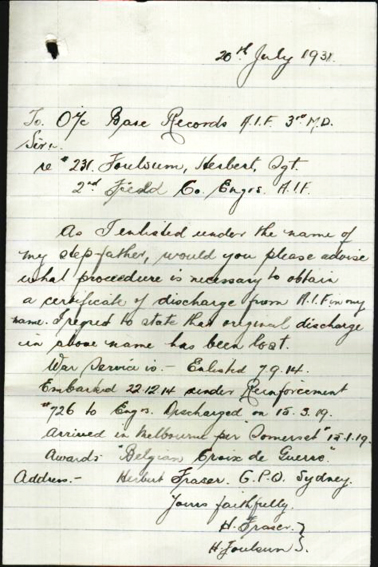 20th July 1931.
To. O/c Base Records A.I.F. 3rd M.D.
Sir:-
re # 231. Foulsum, Herbert, Sgt.
2nd Field Co. Engrs. A.I.F.
As I enlisted under the name of
my step-father, would you please advise
what procedure is necessary to obtain
a certificate of discharge from A.I.F. in my
name. I regret to state that original discharge
in above name has been lost.
War Service is. - Enlisted 7.9.14.
Embarked 22.12.14 under Reinforcement
#726 to Engrs. Discharged on 15.3.19.
Arrived in Melbourne per "Somerset" 15.1.19.
Awards "Belgian Croix de Guerre."
Address.- Herbert Fraser. G.P.O. Sydney.
Yours faithfully.
H. Fraser. }
H. Foulsum }.